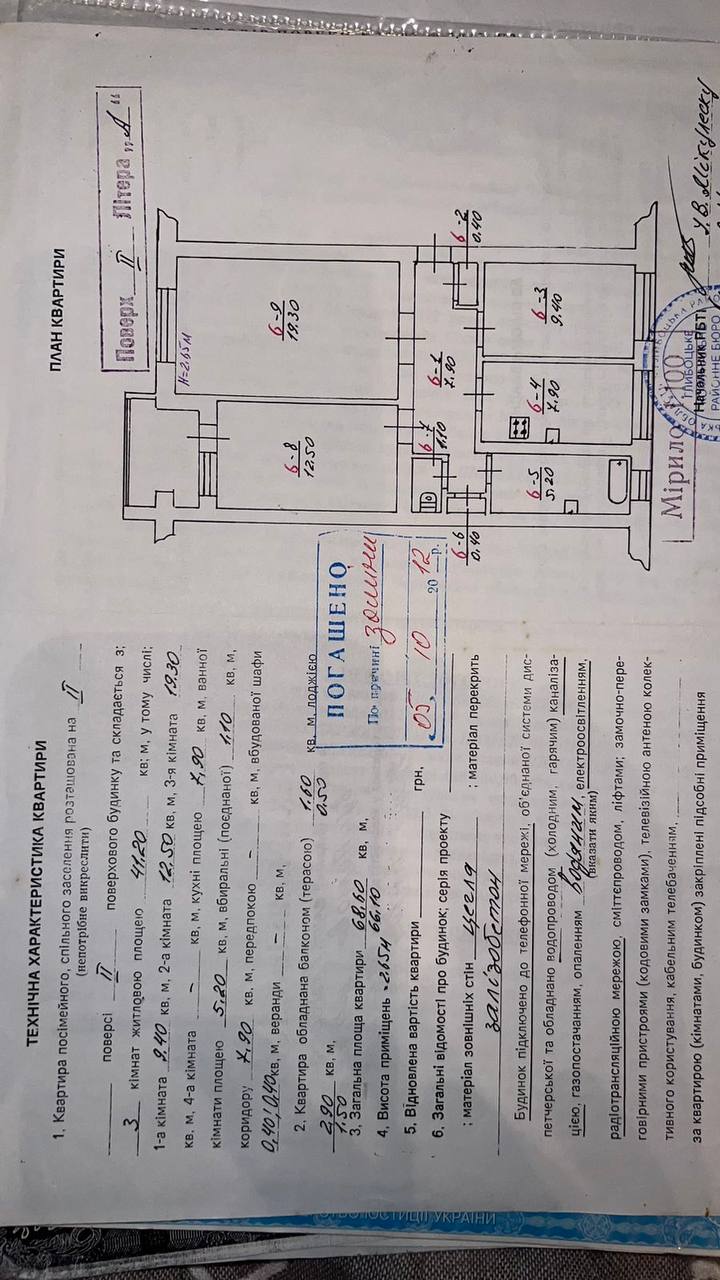 ТЕХНІЧНА ХАРАКТЕРИСТИКА КВАРТИРИ
1. Квартира посімейного, спільного заселення розташована на II
(непотрібне викреслити)
поверсі II поверхового будинку та складається з:
3 кімнат житловою площею 41.20 кв; м, у тому числі;
1-а кімната 9.40 кв, м, 2-а кімната 12.50 кв, м, 3-я кімната 19.30
кв, м, 4-а кімната – кв, м, кухні площею 7.90 кв, м, ванної
кімнати площею 5.20 кв, м, вбиральні (поєднаної) 1.10 кв, м,
коридору 7.90 кв, м, передпокою – кв, м, вбудованої шафи
0,40; 0,40 кв, м, веранди – кв, м,
2. Квартира обладнана балконом (терасою) 1.60 кв, м, лоджією
0.50
2.90 кв, м,
1.50
3, Загальна площа квартири 68.60 кв, м,
66.10
4, Висота приміщень 2.65 м
5, Відновлена вартість квартири грн,
6, Загальні відомості про будинок; серія проекту
; матеріал зовнішніх стін цегла ; матеріал перекрить
залізобетон
Будинок підключено до телефонної мережі, об'єднаної системи дис-
петчерської та обладнано водопроводом (холодним, гарячим) каналіза-
цією, газопостачанням, опаленням водяним, електроосвітленням,
(вказати яким)
радіотрансляційною мережою, сміттєпроводом, ліфтами; замочно-пере-
говірними пристроями (кодовими замками), телевізійною антеною колек-
тивного користування, кабельним телебаченням,
за квартирою (кімнатами, будинком) закріплені підсобні приміщення
ПОГАШЕНО
По причині заміни
05. 10 2012 р.
ПЛАН КВАРТИРИ
Поверх II Літера „А"
H=2.65м
6-8
12.50
6-9
19.30
6-1
7.90
6-7
1.10
6-2
0.40
6-6
0.40
6-5
5.20
6-4
7.90
6-3
9.40
Мірило 100
Начальник РБТІ
ГЛИБОЦЬКЕ
РАЙОННЕ БЮРО
У.В. Мікулеску
УКРАЇНИ